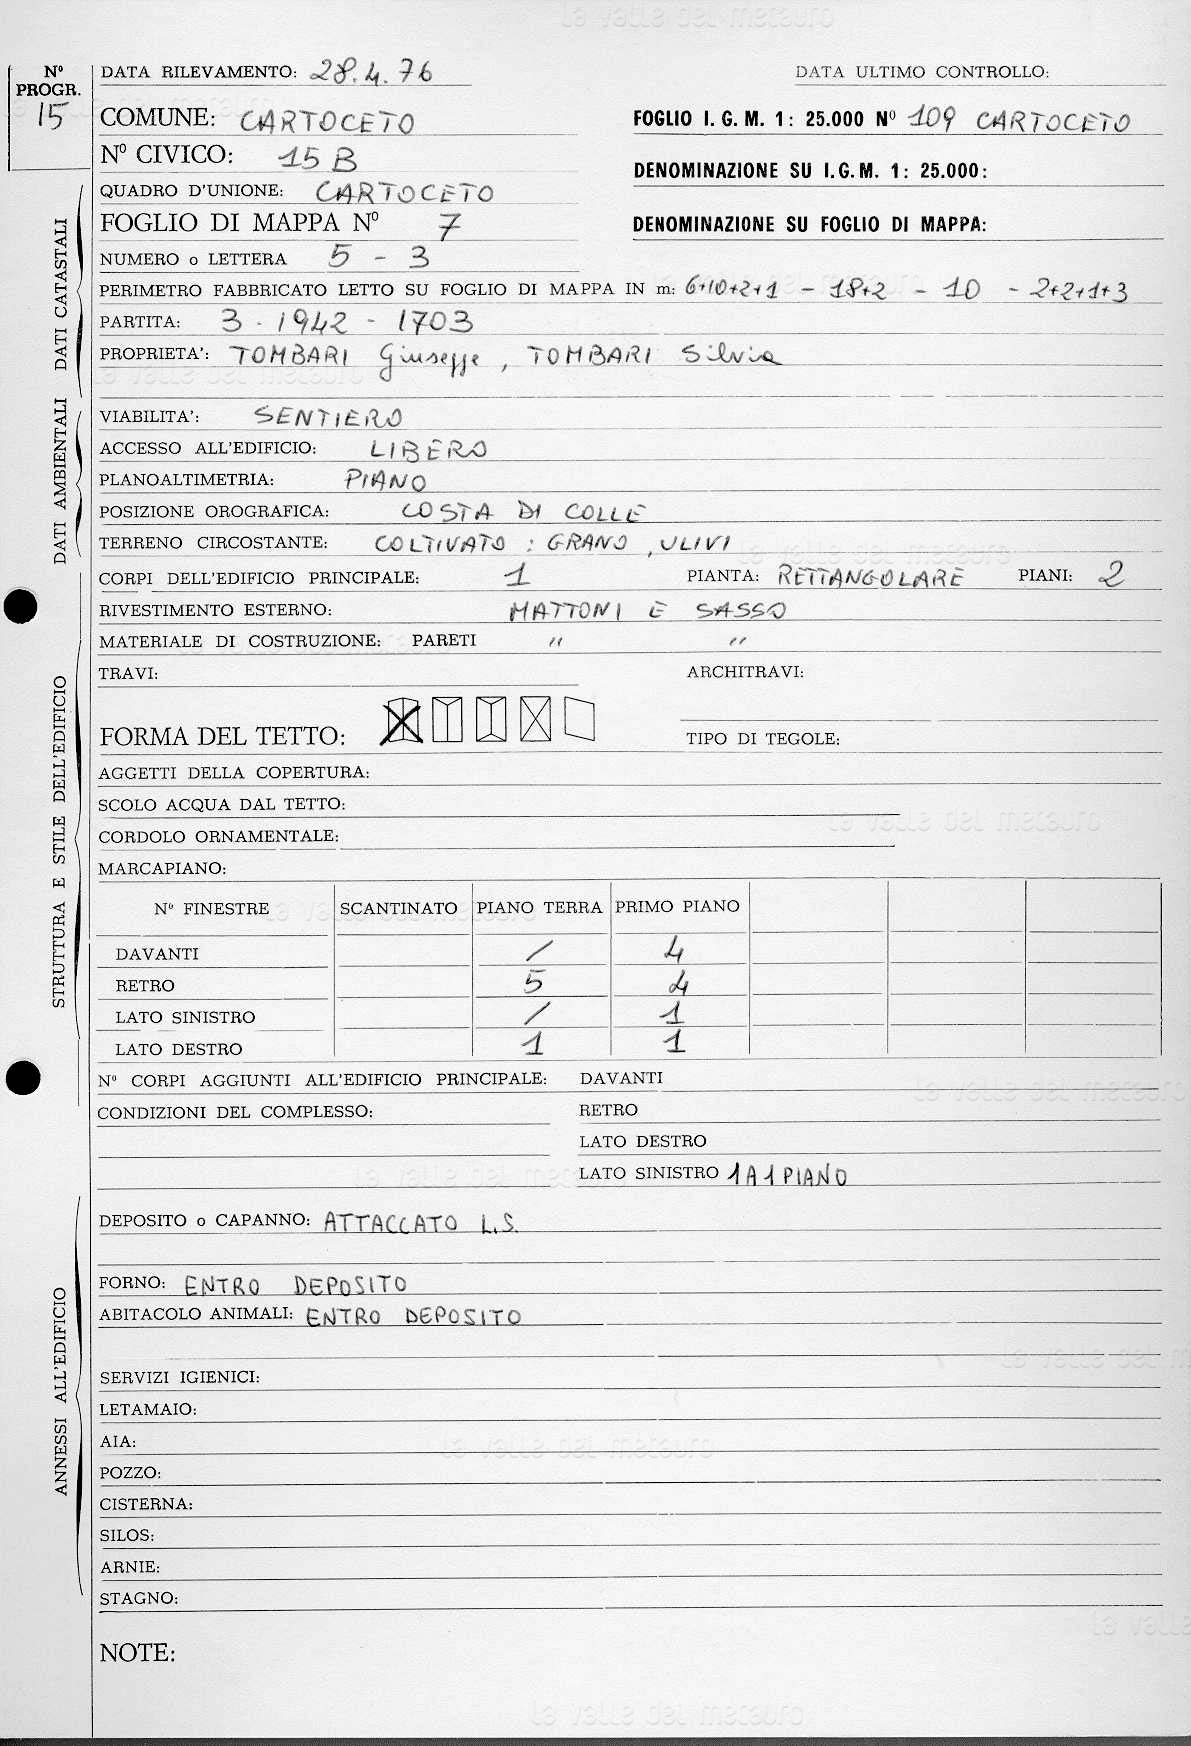 la valle del metauro
Nº PROGR. 15
DATA RILEVAMENTO: 28.4.76 DATA ULTIMO CONTROLLO:
COMUNE: CARTOCETO FOGLIO I.G.M. 1: 25.000 Nº 109 CARTOCETO
Nº CIVICO: 15 B DENOMINAZIONE SU I.G.M. 1: 25.000:
QUADRO D'UNIONE: CARTOCETO
FOGLIO DI MAPPA Nº 7 DENOMINAZIONE SU FOGLIO DI MAPPA:
DATI CATASTALI
NUMERO o LETTERA 5 - 3
PERIMETRO FABBRICATO LETTO SU FOGLIO DI MAPPA IN m: 6+10+2+1 - 18+2 - 10 - 2+2+1+3
PARTITA: 3 - 1942 - 1703
PROPRIETA': TOMBARI Giuseppe, TOMBARI Silvia
la valle del metauro
DATI AMBIENTALI
VIABILITA': SENTIERO
ACCESSO ALL'EDIFICIO: LIBERO
PLANOALTIMETRIA: PIANO
POSIZIONE OROGRAFICA: COSTA DI COLLE
TERRENO CIRCOSTANTE: COLTIVATO : GRANO, ULIVI
la valle del metauro
STRUTTURA E STILE DELL'EDIFICIO
CORPI DELL'EDIFICIO PRINCIPALE: 1 PIANTA: RETTANGOLARE PIANI: 2
RIVESTIMENTO ESTERNO: MATTONI E SASSO
MATERIALE DI COSTRUZIONE: PARETI " "
TRAVI: ARCHITRAVI:
FORMA DEL TETTO: TIPO DI TEGOLE:
AGGETTI DELLA COPERTURA:
SCOLO ACQUA DAL TETTO:
la valle del metauro
CORDOLO ORNAMENTALE:
MARCAPIANO:
Nº FINESTRE SCANTINATO PIANO TERRA PRIMO PIANO
DAVANTI / 4
RETRO 5 4
LATO SINISTRO / 1
LATO DESTRO 1 1
Nº CORPI AGGIUNTI ALL'EDIFICIO PRINCIPALE: DAVANTI
la valle del metauro
CONDIZIONI DEL COMPLESSO: RETRO
LATO DESTRO
LATO SINISTRO 1 A 1 PIANO
la valle del metauro
ANNESSI ALL'EDIFICIO
DEPOSITO o CAPANNO: ATTACCATO L.S.
FORNO: ENTRO DEPOSITO
ABITACOLO ANIMALI: ENTRO DEPOSITO
la valle del m
SERVIZI IGIENICI:
LETAMAIO:
AIA:
la valle del metauro
POZZO:
CISTERNA:
SILOS:
ARNIE:
STAGNO:
la valle
NOTE:
la valle del metauro